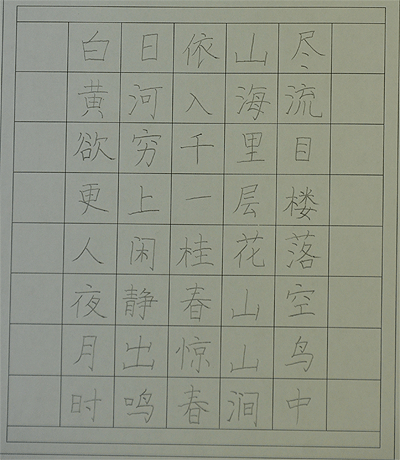 白日依山尽
黄河入海流
欲穷千里目
更上一层楼
人闲桂花落
夜静春山空
月出惊山鸟
时鸣春涧中